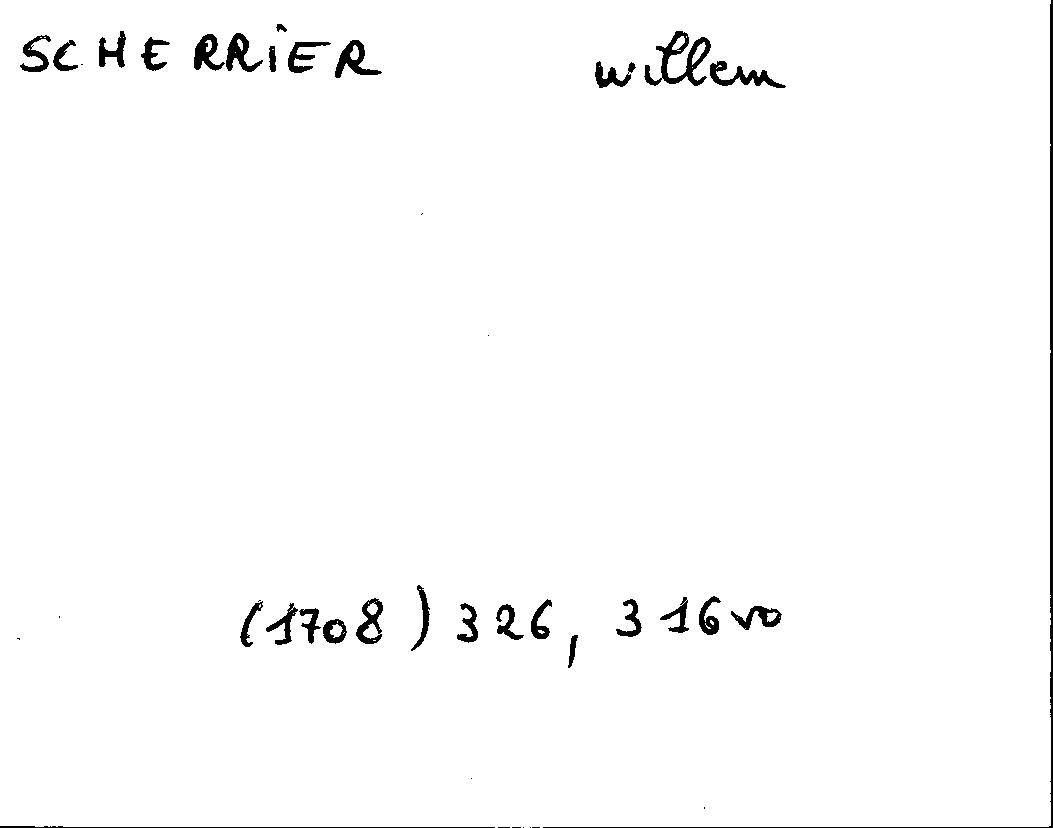 SCHERRiER willem
(1708) 326, 316vo